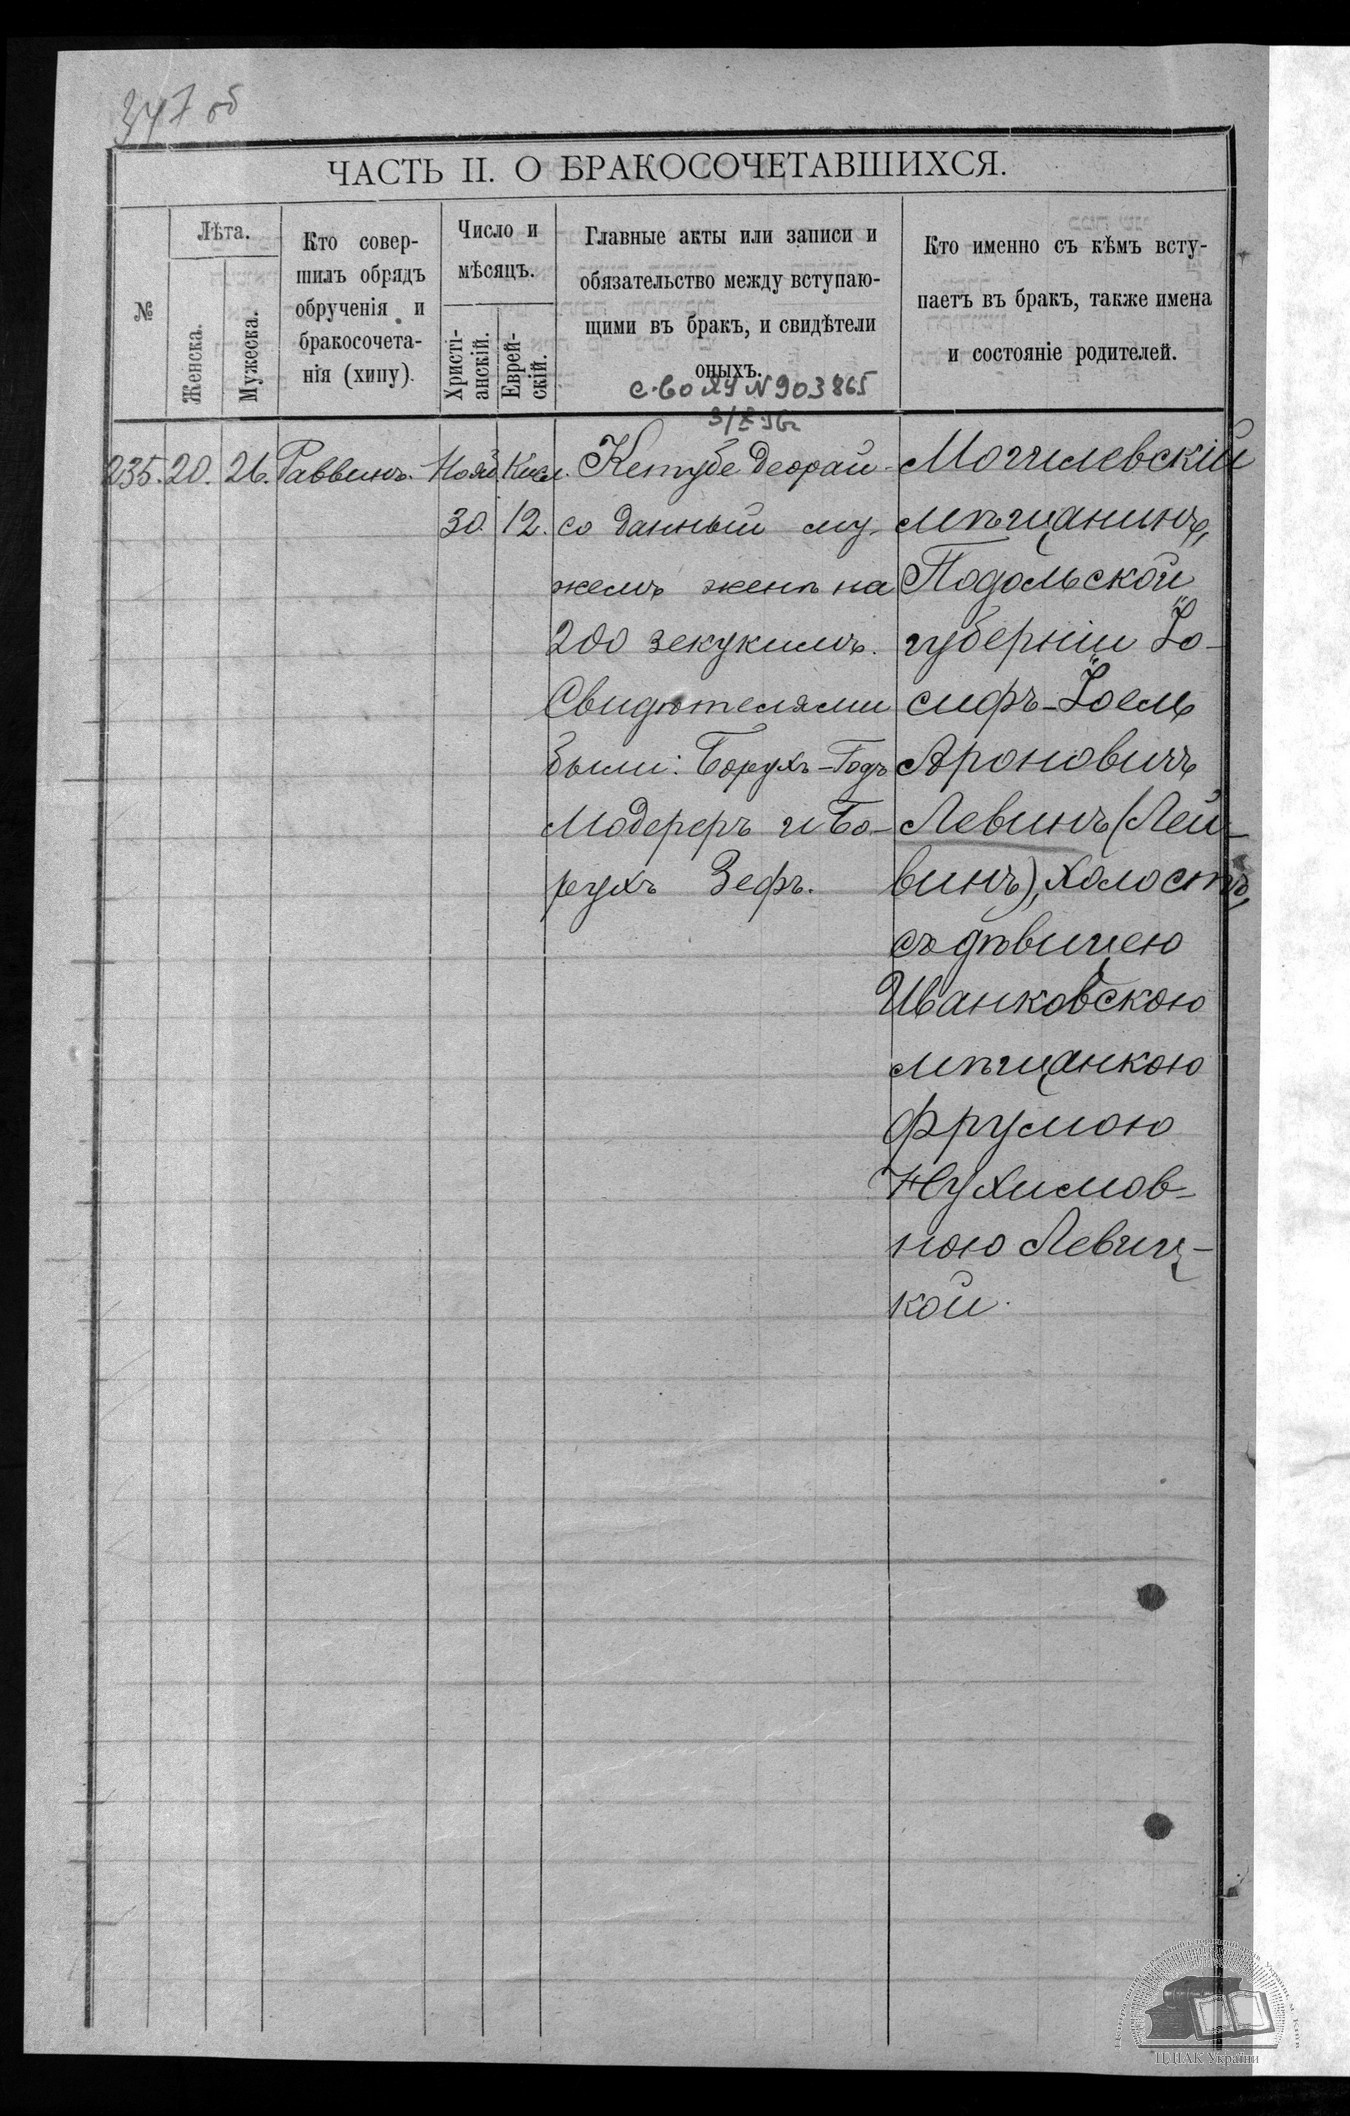 347 об
ЧАСТЬ II. О БРАКОСОЧЕТАВШИХСЯ.
№
Лѣта.
Женска.
Мужеска.
Кто совер-
шилъ обрядъ
обрученія и
бракосочета-
нія (хипу).
Число и
мѣсяцъ.
Христі-
анскій.
Еврей-
скій.
Главные акты или записи и
обязательство между вступаю-
щими въ бракъ, и свидѣтели
оныхъ.
с-во ЯУ N 903865
Кто именно съ кѣмъ всту-
паетъ въ бракъ, также имена
и состояніе родителей.
235. 20. 26. Раввинъ. Нояб. Кисл.
30. 12.
Кетубе деорай-
со данный му-
жемъ женѣ на
200 зекукимъ.
Свидѣтелями
были: Борухъ-Годъ
Модереръ и Бо-
рухъ Зефъ.
Могилевскій
мѣщанинъ,
Подольской
губерніи Іо-
сифъ-Іоель
Ароновичъ
Левинъ (Лей-
винъ), холостъ,
съ дѣвицею
Иванковскою
мѣщанкою
Фрумою
Нухимов-
ною Левиц-
кой.
ЦДІАК України